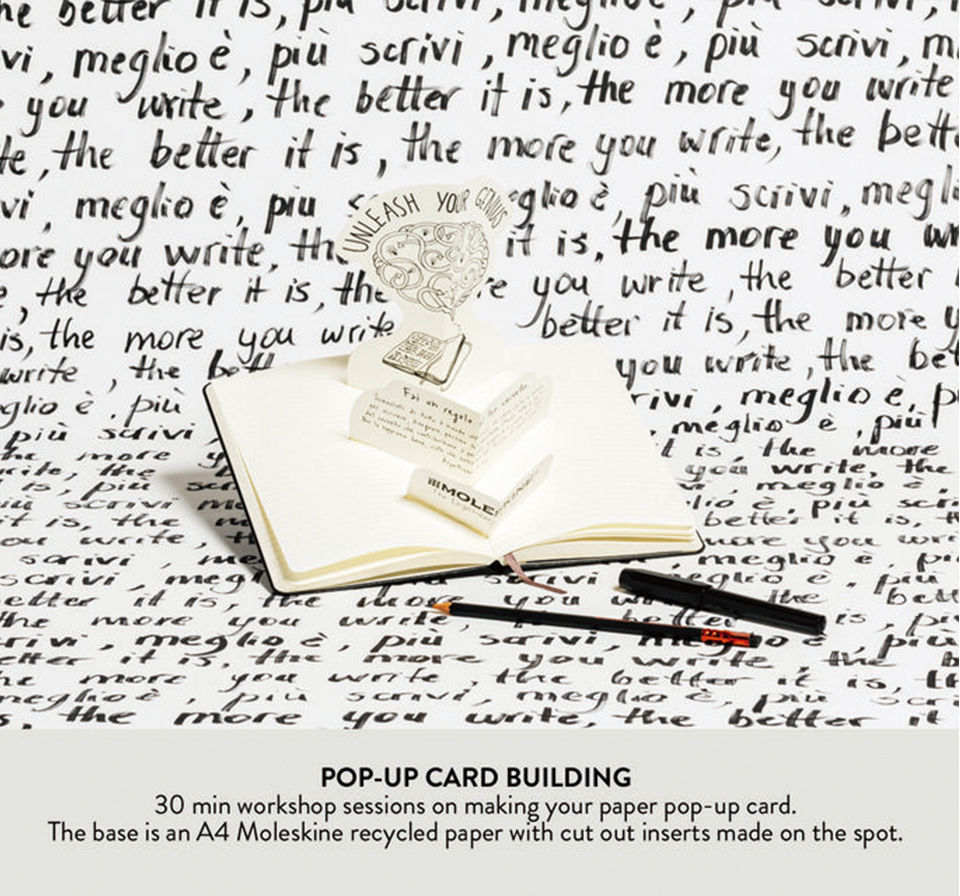 the better it is, più scrivi, meglio è, più scrivi,
vi, meglio è, più scrivi, meglio è, più scrivi, m
you write, the better it is, the more you write
te, the better it is, the more you write, the bett
vi, meglio è, più s eglio è, più scrivi, megli
UNLEASH YOUR GENIUS
ore you write, th it is, the more you wr
e, the better it is, the re you write, the better
is, the more you write better it is, the more y
write, the bett you write, the bet
glio è, più rivi, meglio è, p
più scrivi meglio è, più
Fai un regalo
MOLESKINE
the more t is, the more
write, the you write, the
is, più scr meglio è,
più scrivi, me lio è, più scri
it is, the better it is, th
ou write, more you wri
scrivi, me meglio è, p
scrivi, meg scrivi meglio è, più
etter it is, the more you the bett
the more you write, better is, pi
rivi, meglio è, più scrivi, meglio è, più
etter it is, the more you write, the b
he more you write, the better it is, th
meglio è, più scrivi, meglio è, più scr
s, the more you write, the better it
POP-UP CARD BUILDING
30 min workshop sessions on making your paper pop-up card.
The base is an A4 Moleskine recycled paper with cut out inserts made on the spot.